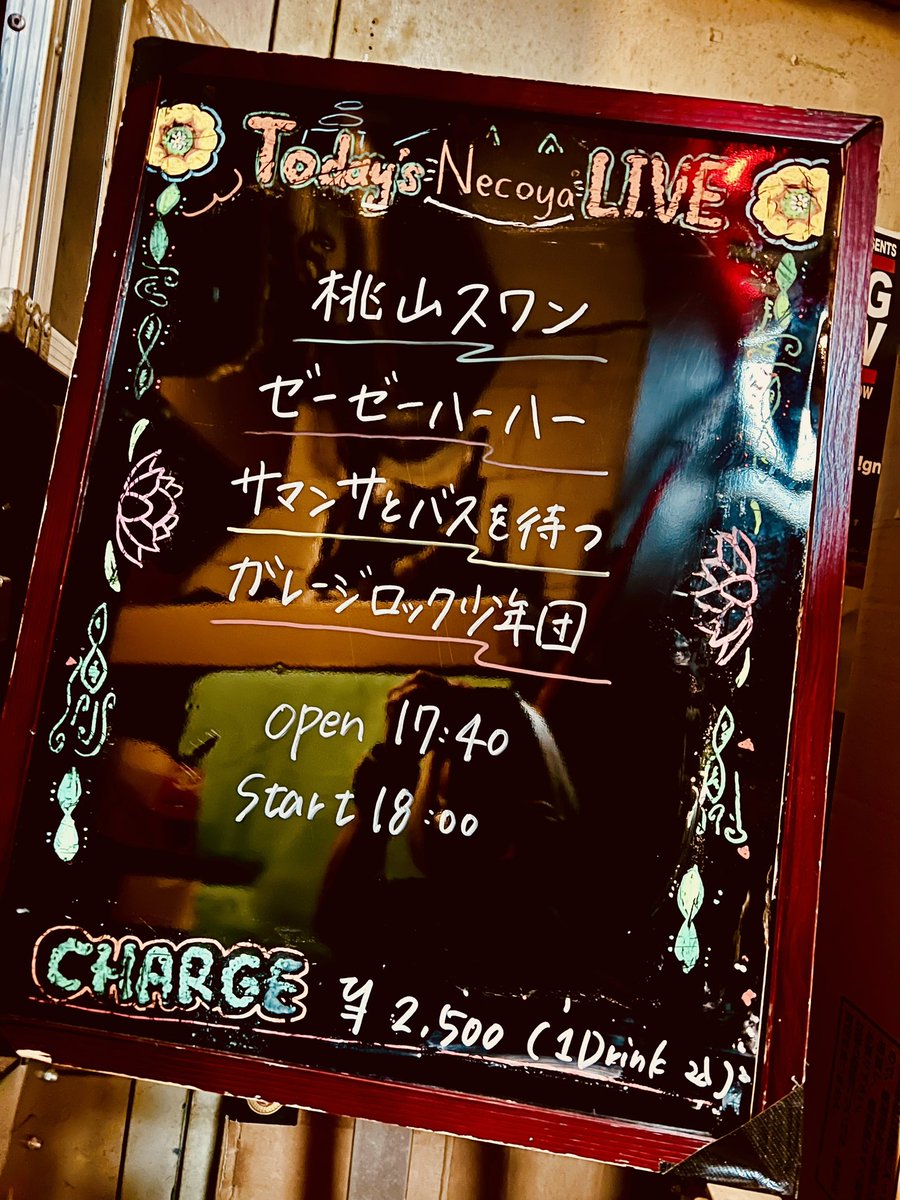 Today's Necoya LIVE
桃山スワン
ゼーゼーハーハー
サマンサとバスを待つ
ガレージロック少年団
open 17:40
Start 18:00
CHARGE ¥2,500 (1Drink込)
SENTS
G
W
OW
!gn